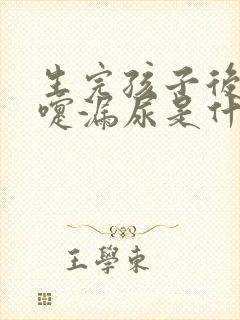 生完孩子後
嚏漏尿是什
王學東